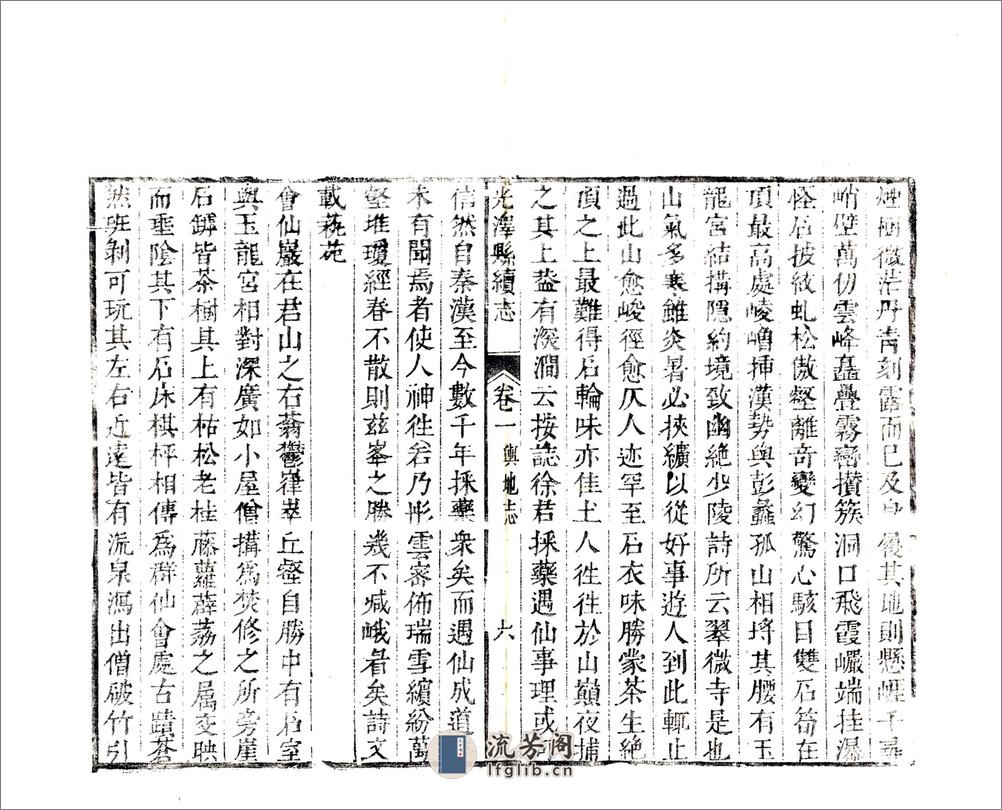 煙樹微茫丹青刻露而已及身履其地則懸崖千尋
峭壁萬仞雲峰矗疊霧巒攢簇洞口飛霞巖端挂瀑
怪石披紋虬松傲壑離奇變幻驚心駭目雙石筍在
頂最高處崚嶒挿漢勢與彭蠡孤山相埒其腰有玉
龍宮結搆隱約境致幽絶少陵詩所云翠微寺是也
山氣多寒雖炎暑必挾纊以從好事遊人到此輒止
過此山愈峻徑愈仄人迹罕至石衣味勝蒙茶生絶
頂之上最難得石輪味亦佳土人徃徃於山巔夜捕
之其上葢有深澗云按誌徐君採藥遇仙事理或
光澤縣續志
卷一 輿地志
六
信然自秦漢至今數千年採藥衆矣而遇仙成道
未有聞焉者使人神徃若乃彤雲密佈瑞雪繽紛萬
壑堆瓊經春不散則兹峯之勝幾不減峨眉矣詩文
載藝苑
會仙巖在君山之右蓊鬱嵂崒丘壑自勝中有石室
與玉龍宮相對深廣如小屋僧搆爲焚修之所旁崖
石罅皆茶樹其上有枯松老桂藤蘿薜荔之屬交映
而垂陰其下有石床棋枰相傳爲群仙會處古蹟蒼
然班剥可玩其左右近遠皆有流泉瀉出僧破竹引
流芳阁
lfglib.cn